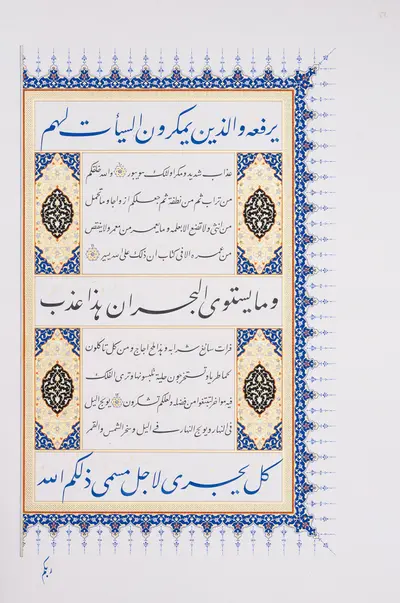 يرفعه والذين يمكرون السيأت لهم
عذاب شديد ومكر اولئك هو يبور والله خلقكم
من تراب ثم من نطفة ثم جعلكم ازواجا وما تحمل
من انثى ولا تضع الا بعلمه وما يعمر من معمر ولا ينقص
من عمره الا فى كتاب ان ذلك على الله يسير
وما يستوى البحران هذا عذب
فرات سائغ شرابه وهذا ملح اجاج ومن كل تاكلون
لحما طريا وتستخرجون حلية تلبسونها وترى الفلك
فيه مواخر لتبتغوا من فضله ولعلكم تشكرون يولج اليل
فى النهار ويولج النهار فى اليل وسخر الشمس والقمر
كل يجرى لاجل مسمى ذلكم الله
ربكم